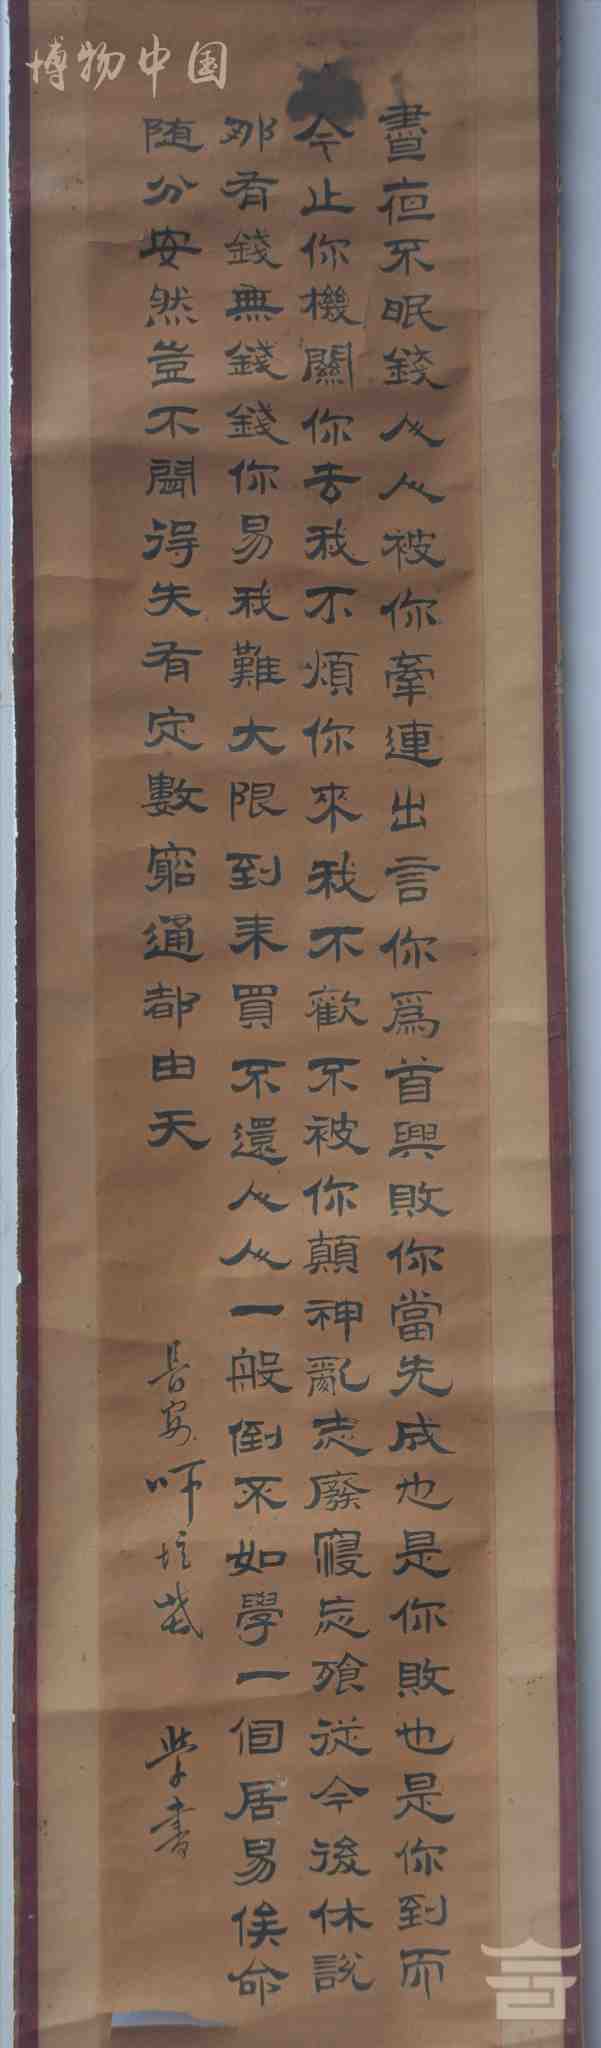 博物中国
晝夜不眠錢人人被你牽連出言你爲首興敗你當先成也是你敗也是你到而
今止你機關你去我不煩你來我不歡不被你顛神亂志廢寢忘飱從今後休說
那有錢無錢錢你易我難大限到來買不還人人一般倒不如學一個居易俟命
随分安然豈不聞得失有定數窮通都由天
長安 師 學書